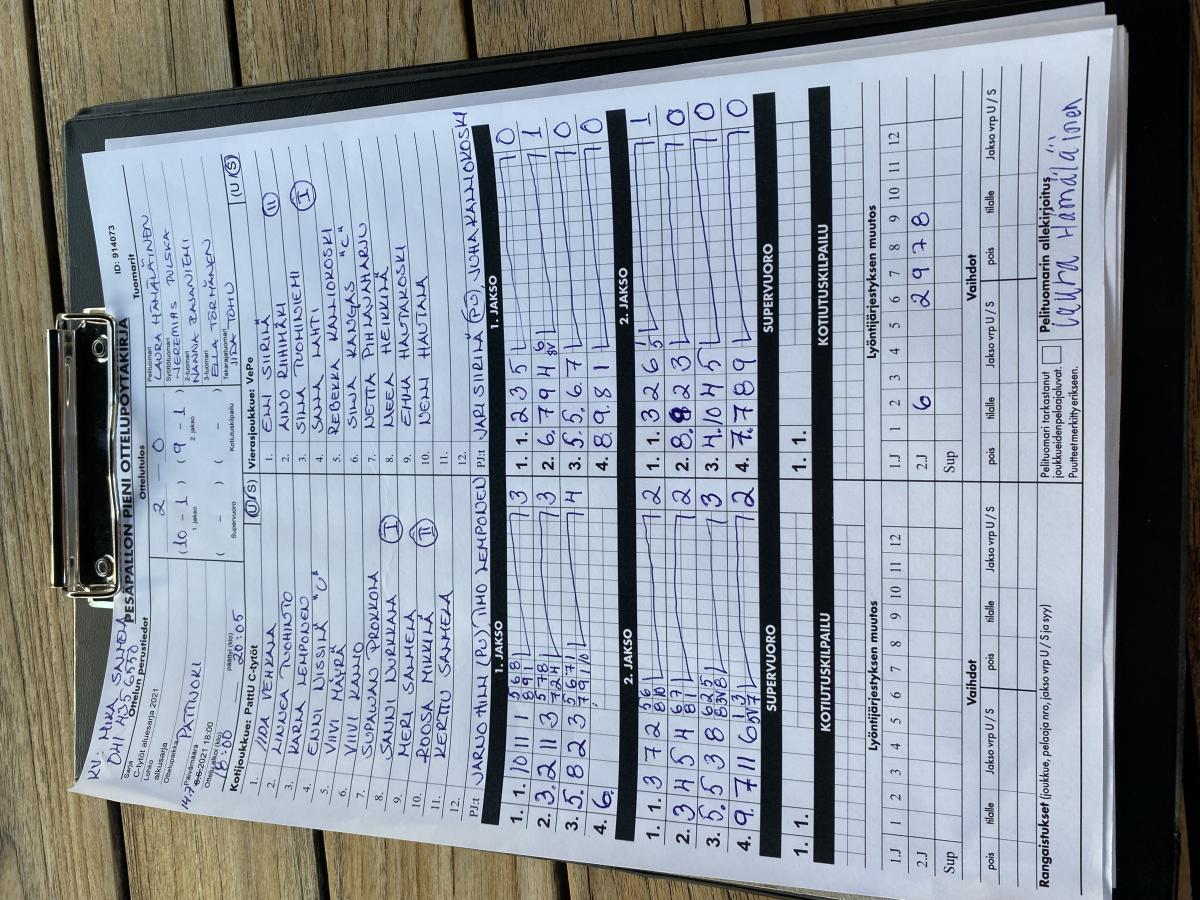 KV: MIKA SALMELA
041 435 6330
PESÄPALLON PIENI OTTELUPÖYTÄKIRJA
ID: 914073
Ottelun perustiedot
Sarja
C-tytöt aluesarja 2021
Lohko
alkusarja
Ottelupaikka
PATTIJOKI
14.7 Päivämäärä
6.8.2021 18:00
Ottelu alkoi (klo)
18:00
päättyi (klo)
20:05
Ottelutulos
2 - 0
(10 - 1) (9 - 1)
1. jakso 2. jakso
( - ) ( - )
Supervuoro Kotiutuskilpailu
Tuomarit
Pelituomari
LAURA HÄMÄLÄINEN
Syöttötuomari
JEREMIAS PULSKA
2-tuomari
NANNA ZAJANIEMI
3-tuomari
ELLA TÖRMÄNEN
Takarajatuomari
IIDA TOHU
Kotijoukkue: Pattu C-tytöt (U/S)
1. IIDA VEHKALA
2. LINNEA TUOHINTO
3. KARLA LEMPONEN
4. ENNI NISSILÄ "C"
5. VIIVI MÄRÄ
6. VIIVI KANNO
7. SUPAWAN PROKKOLA
8. SANNI NURKKALA I
9. MERI SALMELA
10. ROOSA MIKKILÄ II
11. KERTTU SALMELA
12.
PJ:t JARNO HILLI (PJ), TIMO LEMPONEN
Vierasjoukkue: VePe (U/S)
1. ELLI SIIRILÄ II
2. AINO RIIHIMÄKI
3. SILJA TUOMINIEMI I
4. SALLA LAHTI
5. REBEKKA KALLIOKOSKI
6. SINJA KANGAS "C"
7. NETTA PIHLAJAHARJU
8. NEEA HEIKKILÄ
9. EMMA HAUTAKOSKI
10. NELLI HAUTALA
11.
12.
PJ:t JARI SIIRILÄ (PJ), JUHA KALLIOKOSKI
1. JAKSO
1. 1. 10 11 1 5 6 8 8 9 1 3
2. 3. 2 11 3 5 7 8 7 2 4 3
3. 5. 8 2 3 5 6 7 1 7 9 1 10 4
4. 6.
1. JAKSO
1. 1. 2 3 5 0
2. 6. 7 9 4 6 8V 1
3. 5. 5. 6. 7 0
4. 8. 9. 8 1 0
2. JAKSO
1. 1. 3 7 2 5 6 8 10 2
2. 3 4 5 4 6 7 8 1 2
3. 5. 5 3 8 6 2 5 8 3V 8 3
4. 9. 7 11 6 1 3 5V 7 2
2. JAKSO
1. 1. 3 2 6 1 5 1
2. 8. 8 2 3 0
3. 4. 10 4 5 0
4. 7. 7 8 9 0
SUPERVUORO
1. 1.
SUPERVUORO
1. 1.
KOTIUTUSKILPAILU
KOTIUTUSKILPAILU
Lyöntijärjestyksen muutos
1.J 1 2 3 4 5 6 7 8 9 10 11 12
2.J
Sup
Lyöntijärjestyksen muutos
1.J 1 2 3 4 5 6 7 8 9 10 11 12
2.J 6 2 9 7 8
Sup
Vaihdot
pois tilalle Jakso vrp U / S pois tilalle Jakso vrp U / S
Vaihdot
pois tilalle Jakso vrp U / S pois tilalle Jakso vrp U / S
Rangaistukset (joukkue, pelaaja nro, jakso vrp U / S ja syy)
Pelituomari tarkastanut
joukkueidenpelaajaluvat.
Puutteet merkitty erikseen.
Pelituomarin allekirjoitus
Laura Hämäläinen